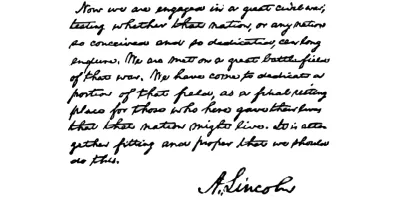 Now we are engaged in a great civil war,
testing whether that nation, or any nation
so conceived and so dedicated, can long
endure. We are met on a great battlefield
of that war. We have come to dedicate a
portion of that field, as a final resting
place for those who here gave their lives
that that nation might live. It is alto
gether fitting and proper that we should
do this.
A. Lincoln